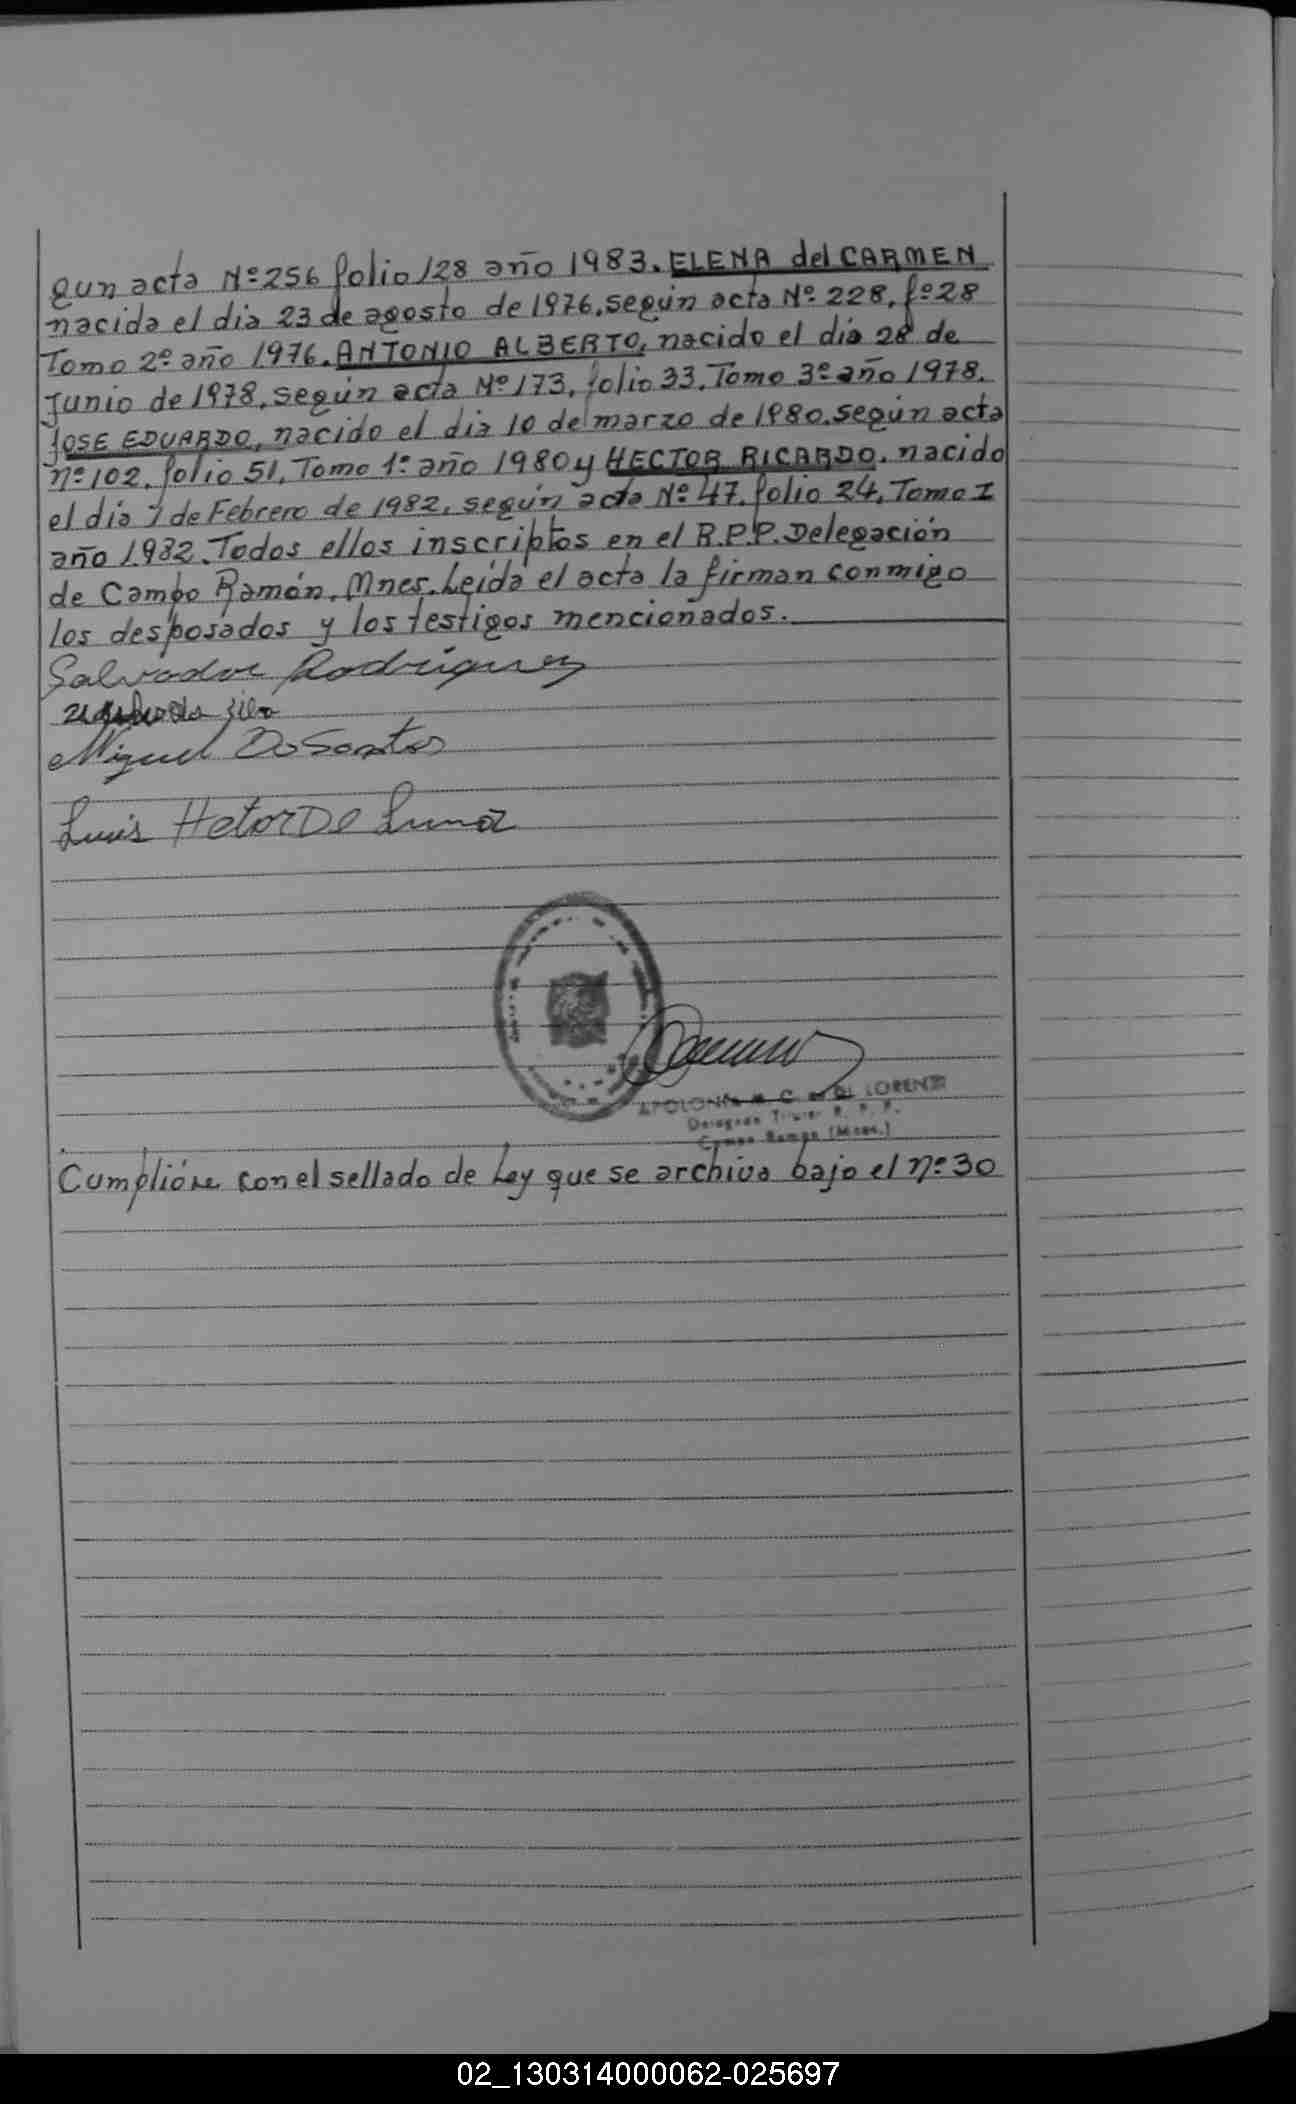 gun acta Nº 256 folio 128 año 1983. ELENA del CARMEN
nacida el dia 23 de agosto de 1976, según acta Nº 228, fº 28
Tomo 2º año 1976. ANTONIO ALBERTO, nacido el dia 28 de
Junio de 1978, según acta Nº 173, folio 33, Tomo 3º año 1978.
JOSE EDUARDO, nacido el dia 10 de marzo de 1980, según acta
nº 102, folio 51, Tomo 1º año 1980 y HECTOR RICARDO, nacido
el dia 7 de Febrero de 1982, según acta Nº 47, folio 24, Tomo I
año 1982. Todos ellos inscriptos en el R.P.P. Delegación
de Campo Ramón, Mnes. Leida el acta la firman conmigo
los desposados y los testigos mencionados.
Salvador Rodriguez
Miguel Do Santos
Luis Hetor De Luna
APOLONIA C. DI LORENZI
Titular R. P. P.
Campo Ramon (Mnes.)
Cumplióse con el sellado de Ley que se archiva bajo el nº 30
02_130314000062-025697